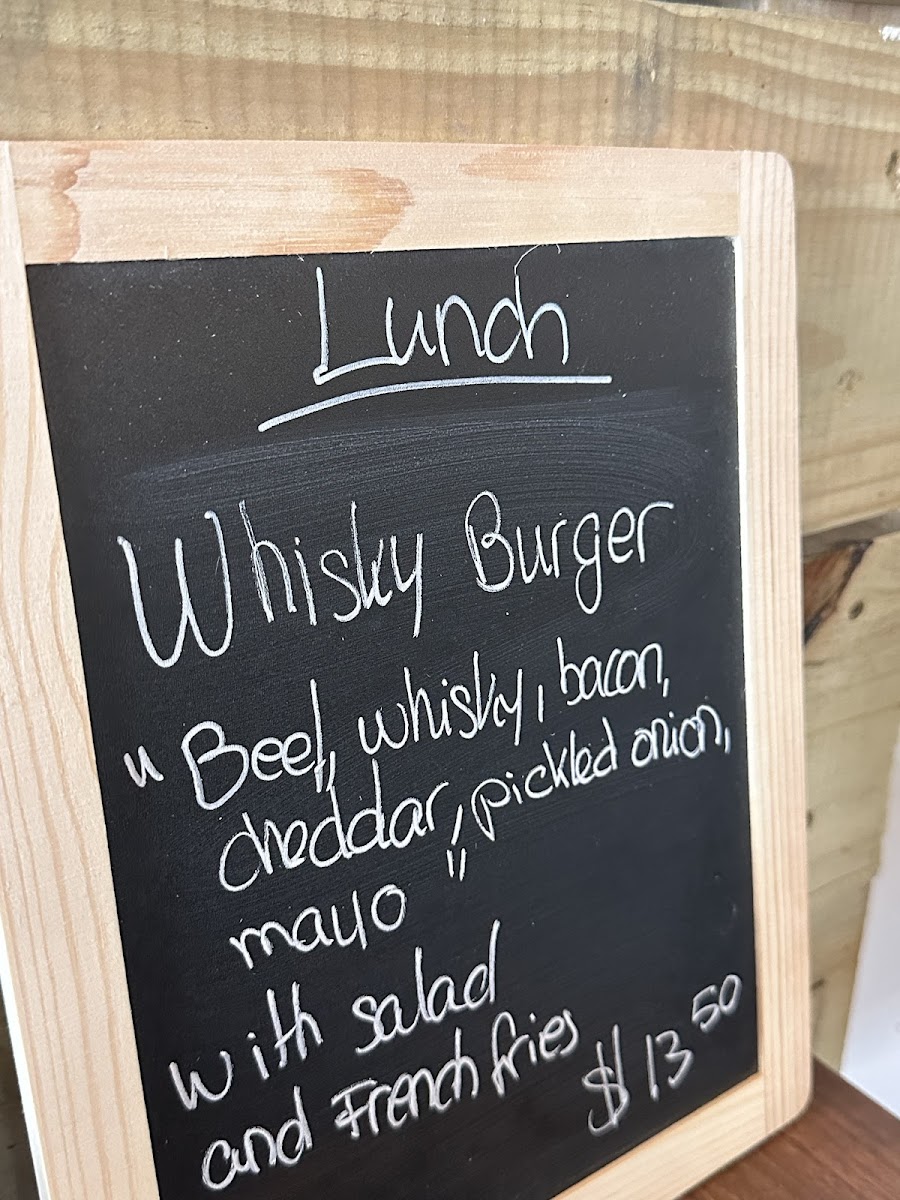 Lunch
Whisky Burger
"Beef, whisky, bacon,
cheddar, pickled onion,
mayo"
with salad
and French fries $13 50